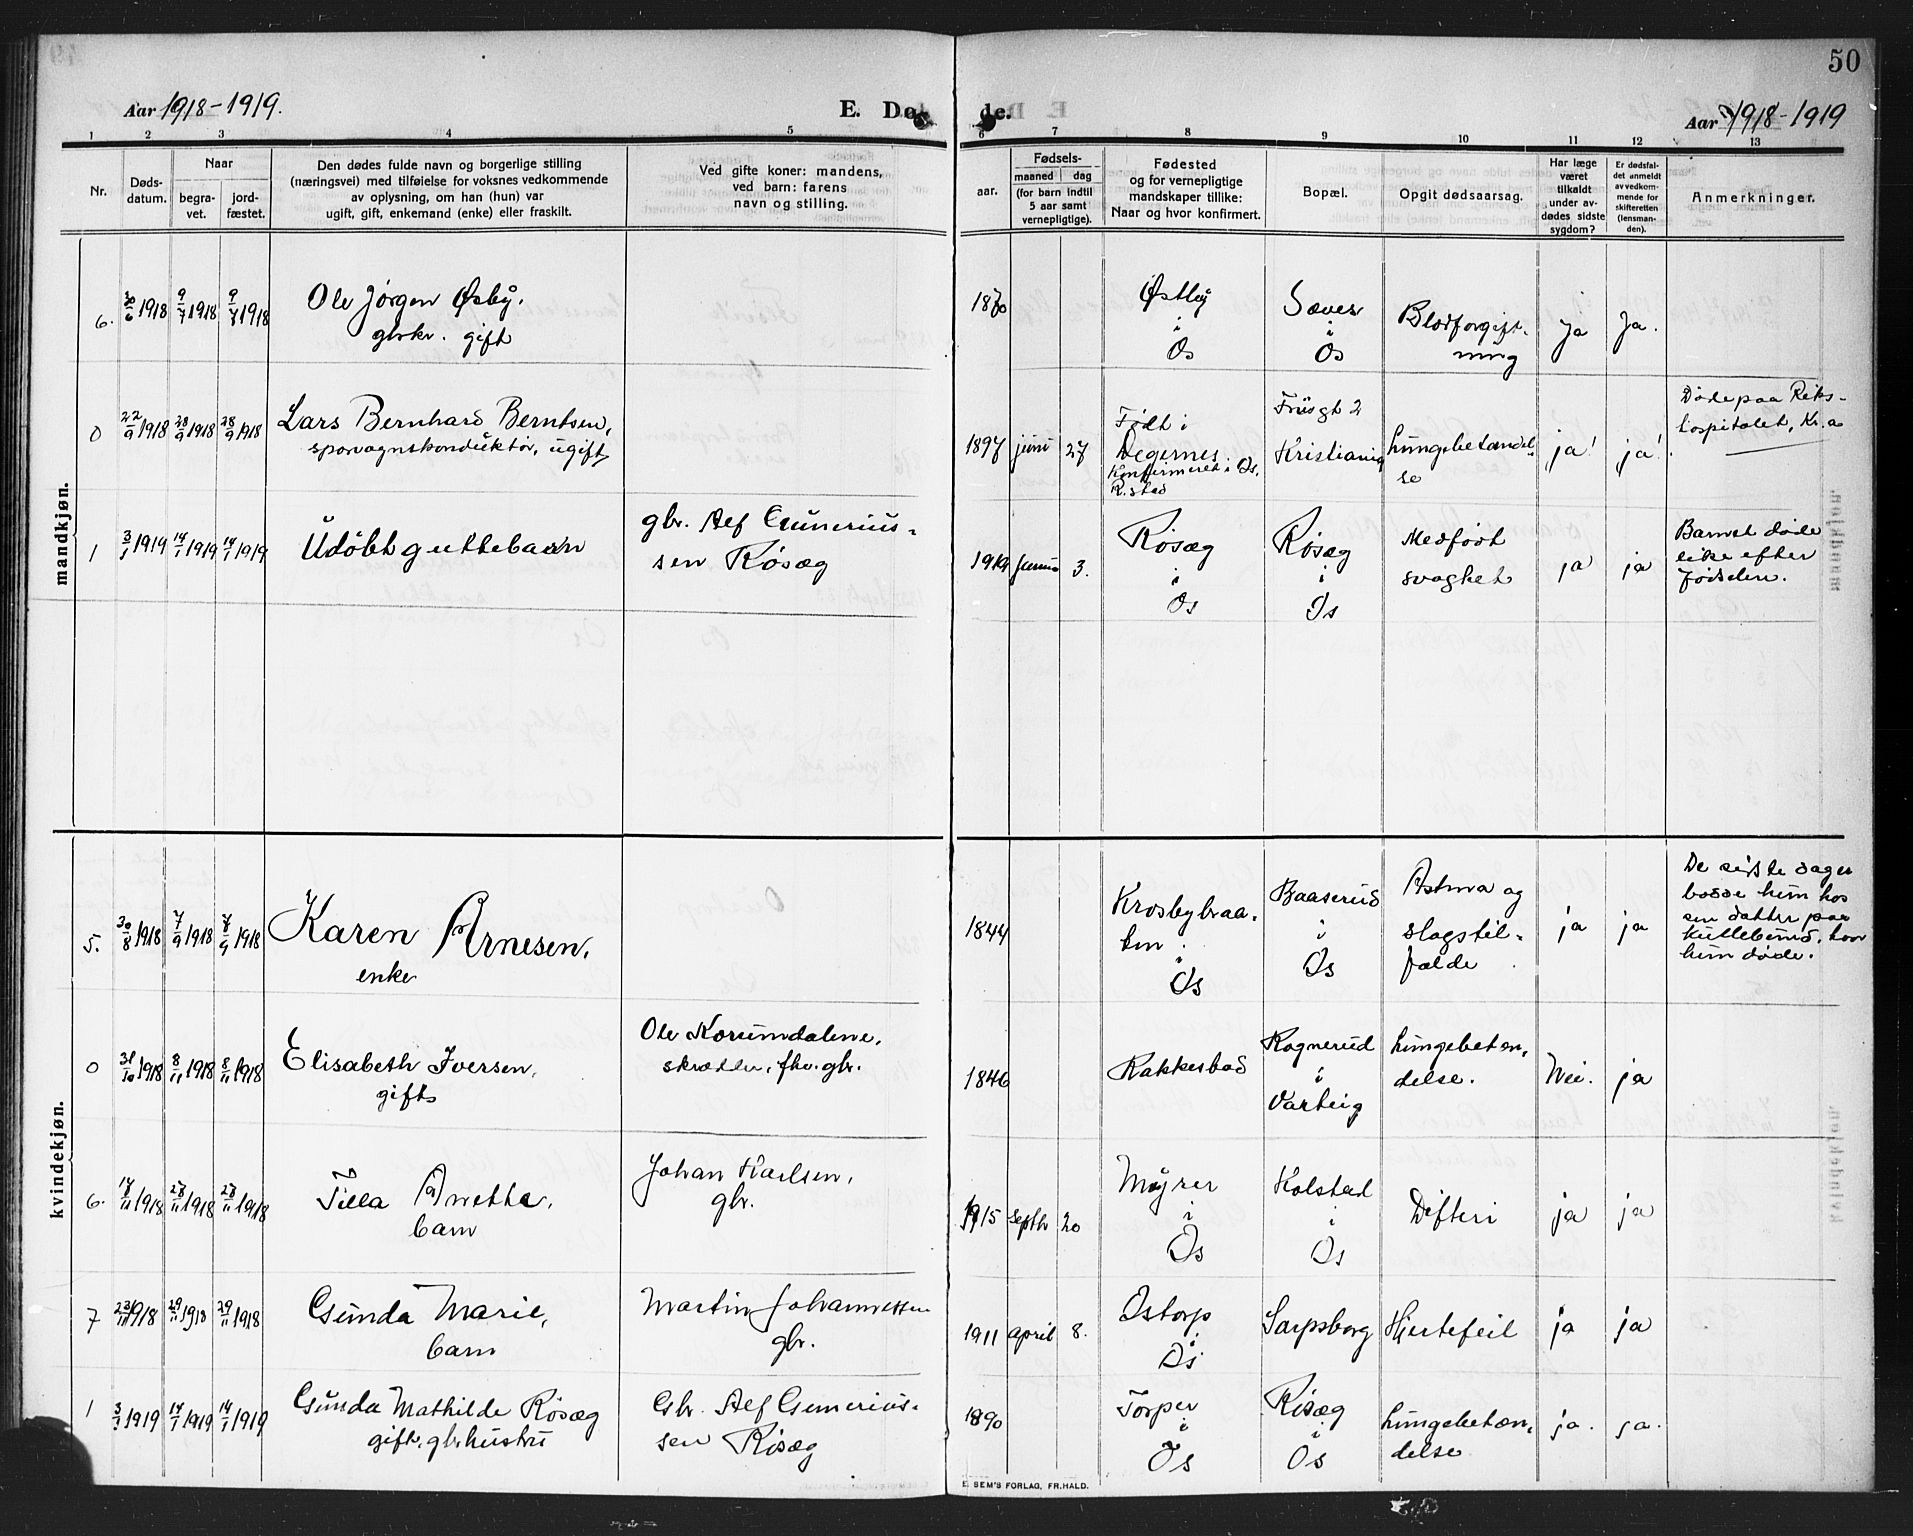 50
Aar 1918-1919.
E. Dø
de.
Aar 1918-1919
1 2 3 4 5 6 7 8 9 10 11 12 13
Nr.
Døds-
datum.
Naar
begra-
vet.
jord-
fæstet.
Den dødes fulde navn og borgerlige stilling
(næringsvei) med tilføielse for voksnes vedkommende
av oplysning, om han (hun) var
ugift, gift, enkemand (enke) eller fraskilt.
Ved gifte koner: mandens,
ved barn: farens
navn og stilling.
aar.
Fødsels-
maaned dag
(for barn indtil
5 aar samt
vernepligtige).
Fødested
og for vernepligtige
mandskaper tillike:
Naar og hvor konfirmert.
Bopæl.
Opgit dødsaarsag.
Har læge
været
tilkaldt
under av-
dødes sidste
sygdom?
Er dødsfal-
det anmeldt
av vedkom-
mende for
skifteretten
(lensman-
den).
Anmerkninger.
mandkjøn.
6. 30/6 1918 9/7 1918 9/7 1918
Ole Jørgen Øsby.
gbrkr. gift
1870
Østby
i
Os
Sæves
i
Os
Blodforgift-
ning
ja
Ja.
0 22/9 1918 28/9 1918 28/9 1918
Lars Bernhard Berntsen,
sporvognskonduktør, ugift
1897 juni 27
Født i
Degernes.
Konfirmeret i Os.
R.stad
2
Kristiania
lungebetændel-
se
ja!
ja!
Døde paa Riks-
hospitalet, Kr.a
1 3/1 1919 14/1 1919 14/1 1919
Udøbt guttebarn
gbr. Alf Gunerius-
sen Røsæg
1919 3.
Røsæg
i
Os
Røsæg
i
Os
Medfødt
svaghet
ja
ja
Barnet døde
like efter
fødselen.
kvindekjøn.
5. 30/8 1918 7/9 1918 7/9 1918
Karen Arnesen,
enke
1844
Krosbybraa-
ten
i
Os
Baaserud
i
Os
Astma og
slagstil-
fælde
ja
ja
De sidste dager
bodde hun hos
sen datter paa
Kullebund, hvor
hun døde.
0 31/10 1918 8/11 1918 8/11 1918
Elisabeth Iversen,
gift
Ole Korsundalene,
skrædder, fhv. gbr.
1846
Rakkestad
Rognerud
i
Varteig
lungebetæn-
delse.
Nei.
ja
6. 17/11 1918 28/11 1918 28/11 1918
Tilla Anette,
barn
Johan Karlsen,
gbr.
1915 septbr 20
Møyrer
i
Os
Kolstad
i
Os
Difteri
ja
ja
7 23/11 1918 29/11 1918 29/11 1918
Gunda Marie,
barn
Martin Johannessen
gbr.
1911 april 8.
Ostorp
i
Os
Sarpsborg
Hjertefeil
ja
ja
1 3/1 1919 14/1 1919 14/1 1919
Gunda Mathilde Røsæg
gift, gbr.hustru
Gbr. Alf Gunerius-
sen Røsæg
1890
Torper
i
Os
Røsæg
i
Os
lungebetæn-
delse
ja.
ja.
E. SEM'S FORLAG, FR.HALD.